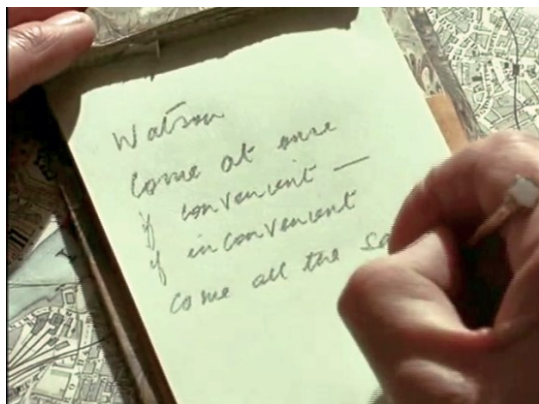 Watson
Come at once
if convenient —
if inconvenient
come all the sa